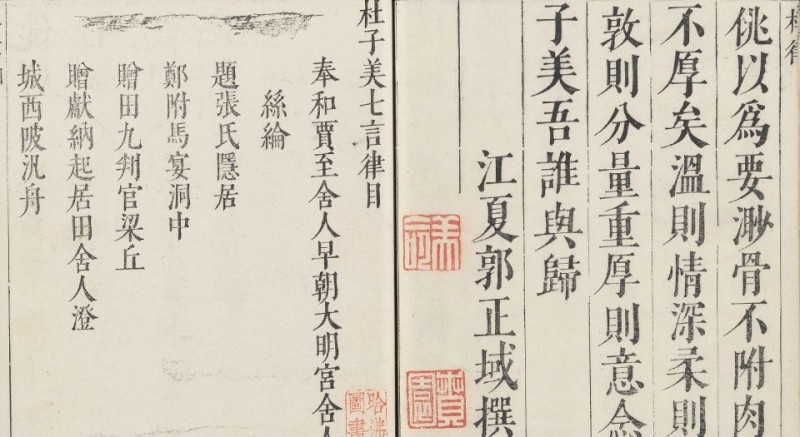 佻以爲要渺骨不附肉
不厚矣溫則情深柔則
敦則分量重厚則意念
子美吾誰與歸
江夏郭正域撰
杜子美七言律目
奉和賈至舍人早朝大明宮舍人
絲綸
題張氏隱居
鄭附馬宴洞中
贈田九判官梁丘
贈獻納起居田舍人澄
城西陂汎舟
哈佛
圖書